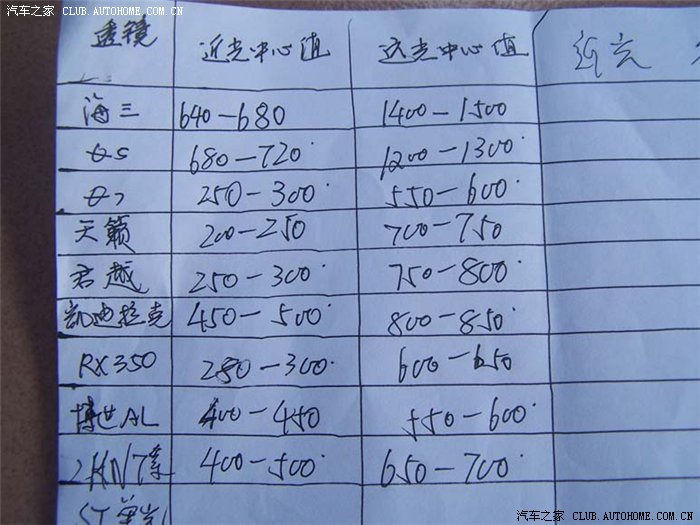 汽车之家 CLUB.AUTOHOME.COM.CN
透镜 近光中心值 远光中心值 近光
海三 640-680 1400-1500
Q5 680-720 1200-1300
Q7 250-300 550-600
天籁 200-250 700-750
君越 250-300 750-800
凯迪拉克 450-500 800-850
RX350 280-300 600-650
博世AL 400-450 550-600
400-500 650-700
汽车之家 CLUB.AUTOHOME.COM.CN